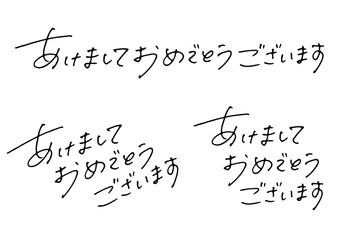 あけましておめでとうございます
あけまして
おめでとう
ございます
あけまして
おめでとう
ございます